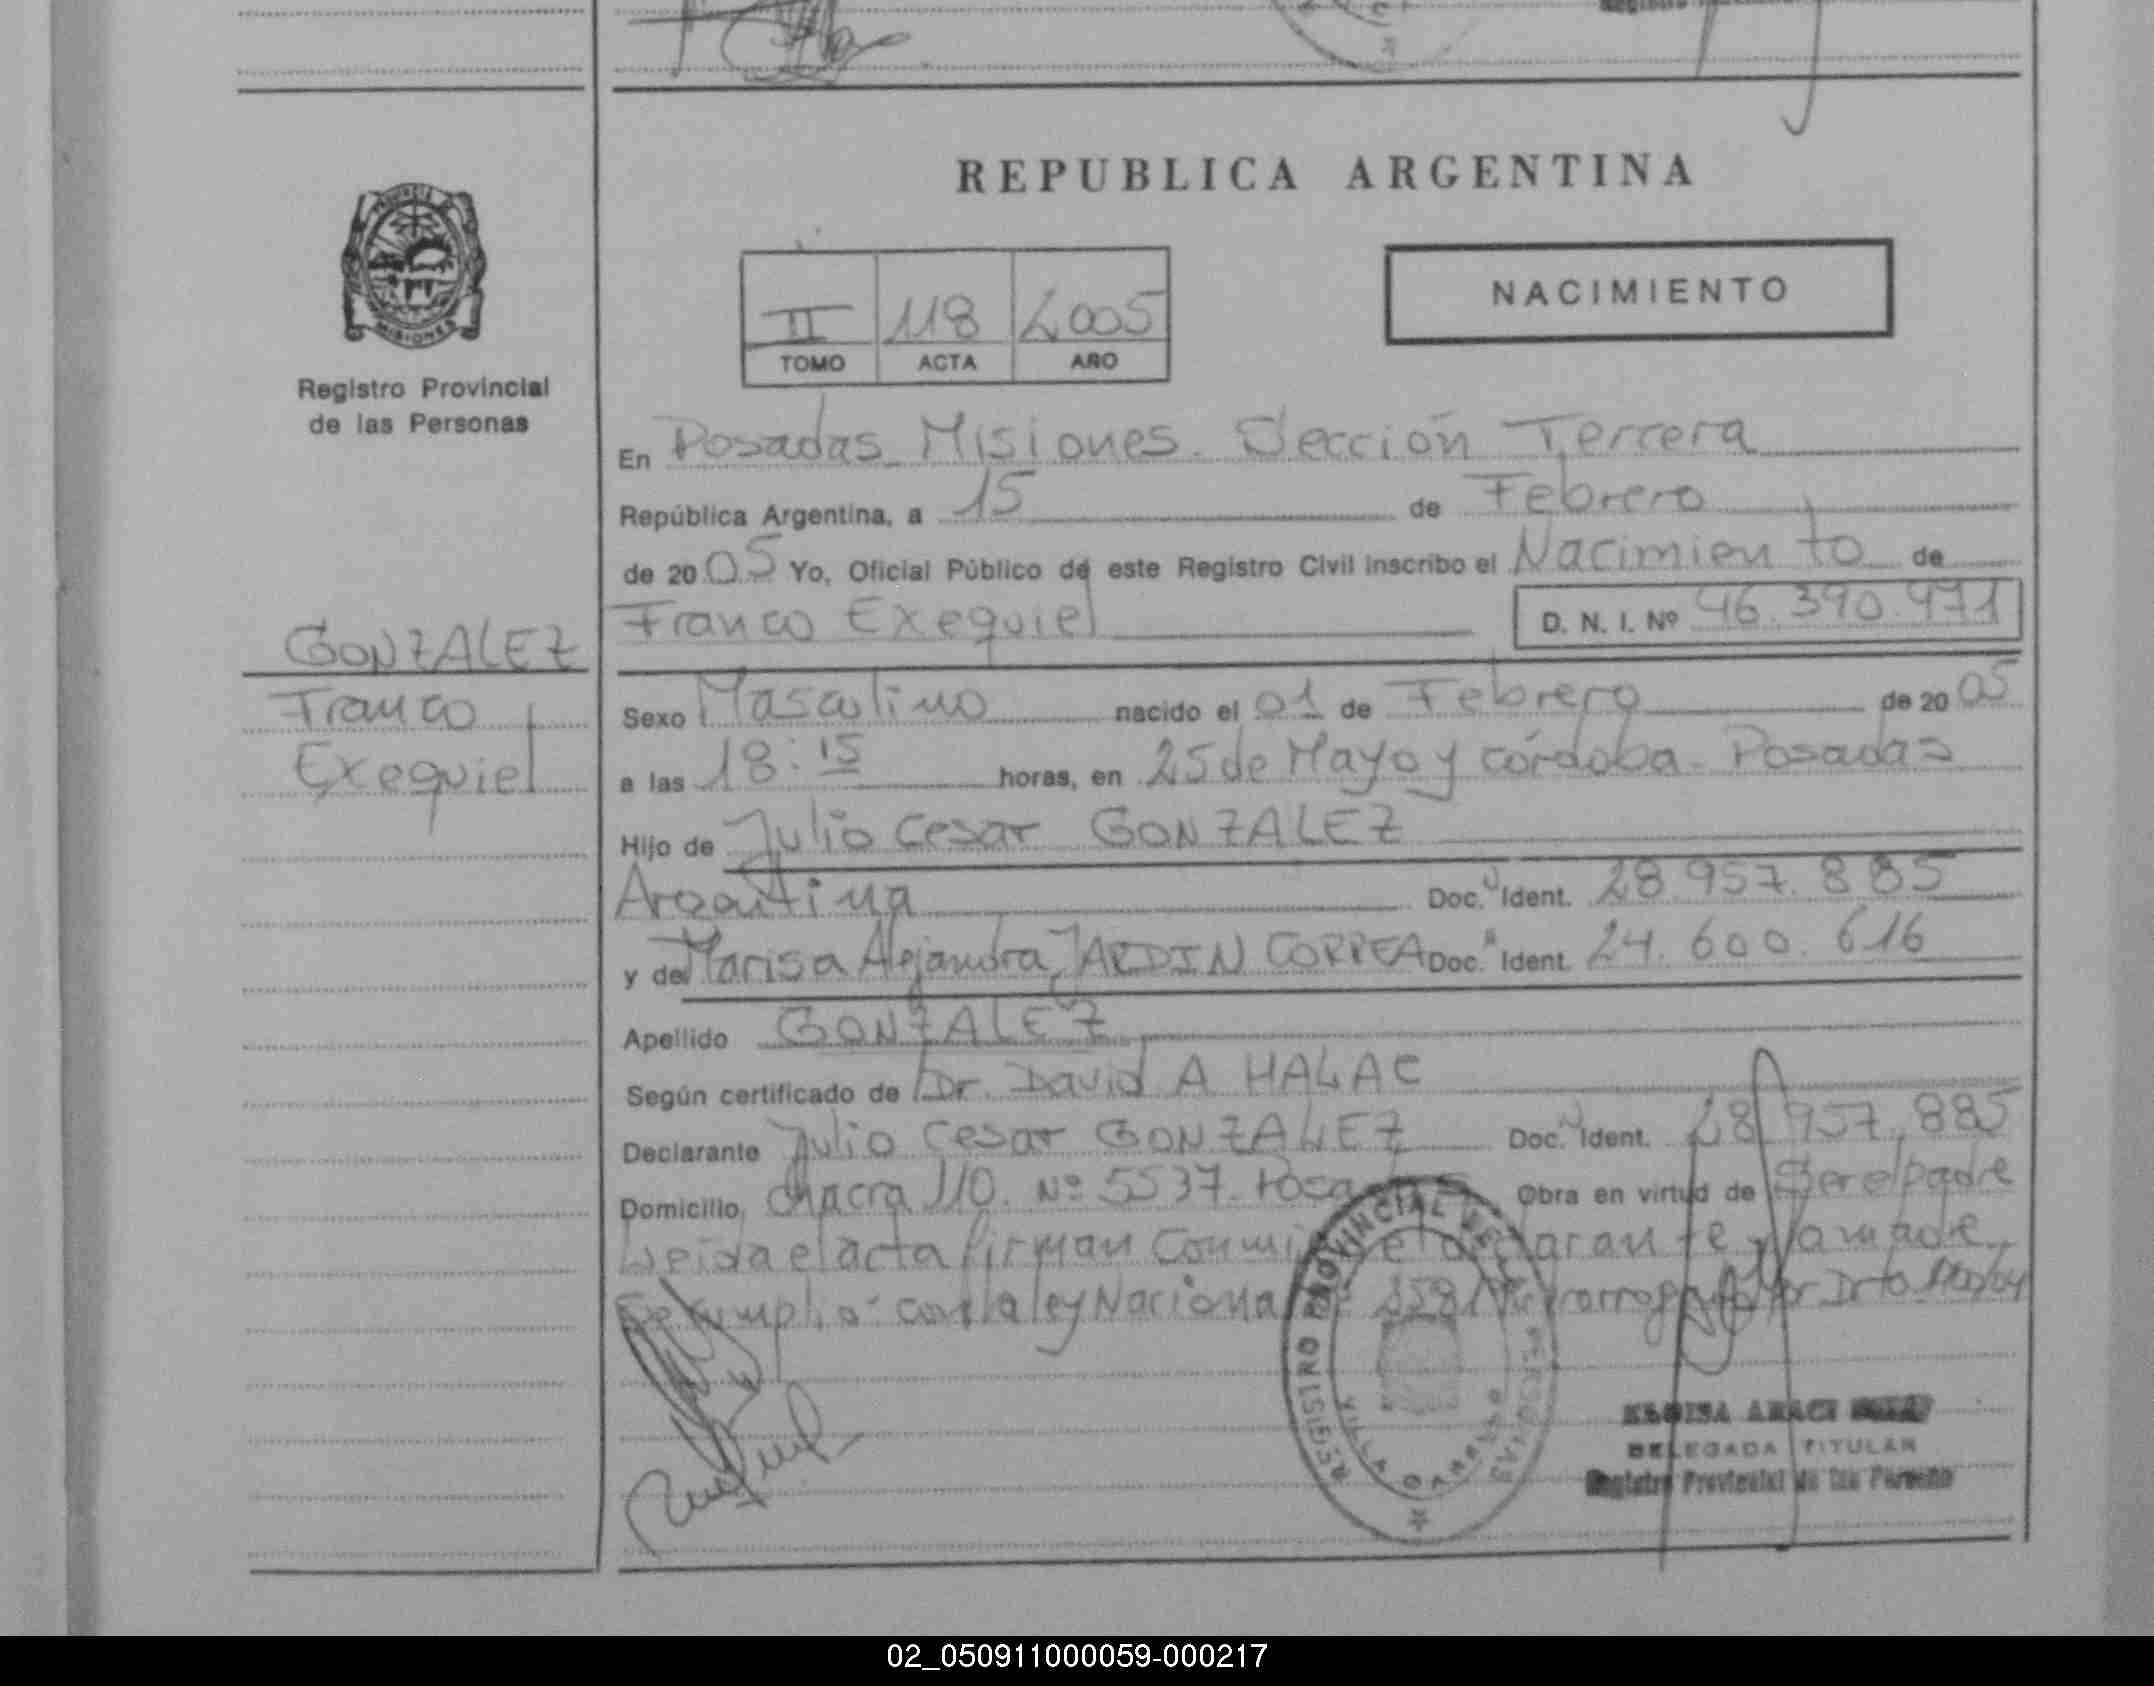 REPUBLICA ARGENTINA
II 118 2005
TOMO ACTA AÑO
NACIMIENTO
PROVINCIA DE
MISIONES
Registro Provincial
de las Personas
En Posadas Misiones. Sección Tercera
República Argentina, a 15 de Febrero
de 2005 Yo, Oficial Público de este Registro Civil inscribo el Nacimiento de
Franco Exequiel D. N. I. Nº 46.390.471
GONZALEZ
Franco
Exequiel
Sexo Masculino nacido el 01 de Febrero de 2005
a las 18:15 horas, en 25 de Mayo y Córdoba - Posadas
Hijo de Julio Cesar GONZALEZ
Argentina Doc. Ident. 28.957.885
y de Marisa Alejandra JARDIN CORREA Doc. Ident. 24.600.616
Apellido GONZALEZ
Según certificado de Dr. David A HALAC
Declarante Julio Cesar GONZALEZ Doc. Ident. 28.957.885
Domicilio Chacra 110. Nº 5537. Posadas Obra en virtud de Ser el padre
Leida el acta firman Conmigo el declarante y la madre
Se cumplió con la ley Nacional
REGISTRO PROVINCIAL DE LAS PERSONAS
VILLA CABELLO
DELEGADA TITULAR
Registro Provincial de las Personas
02_050911000059-000217